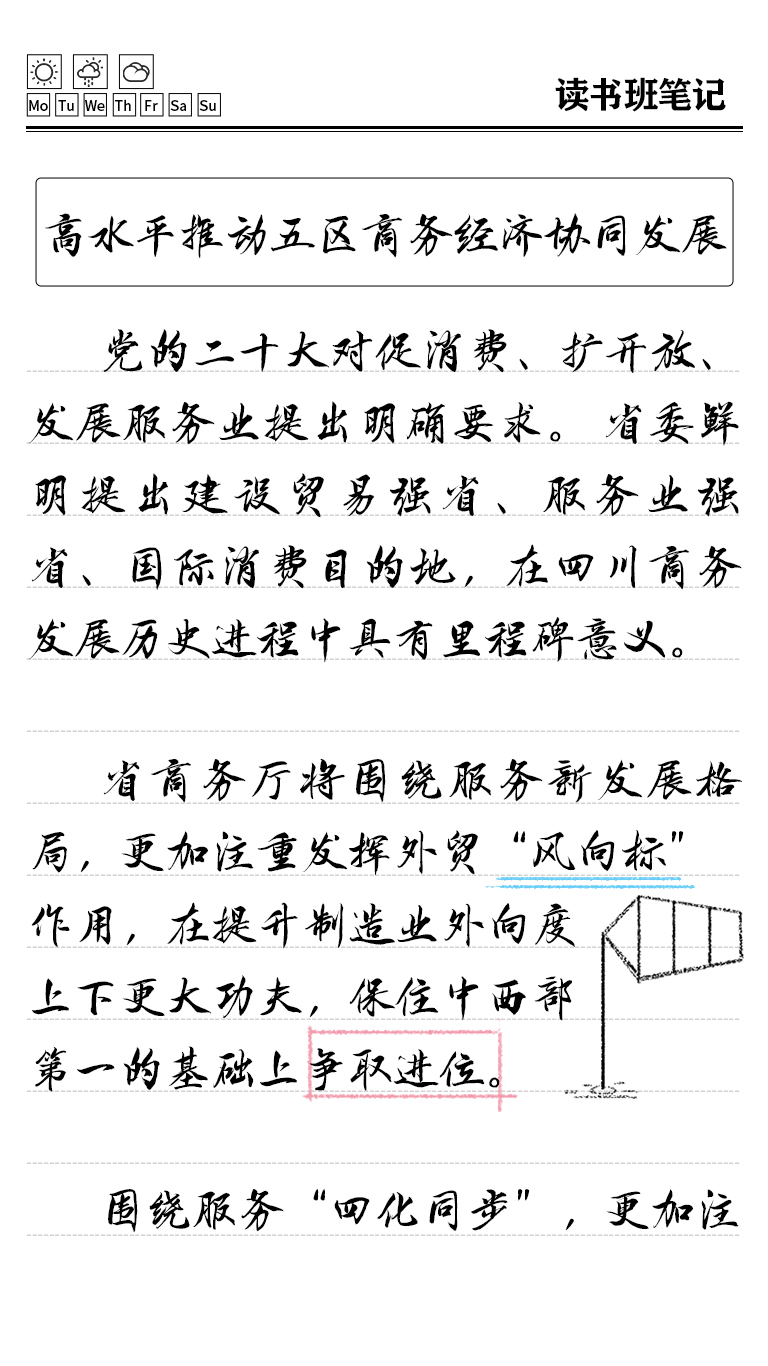 读书班笔记
Mo Tu We Th Fr Sa Su
高水平推动五区商务经济协同发展
党的二十大对促消费、扩开放、
发展服务业提出明确要求。省委鲜
明提出建设贸易强省、服务业强
省、国际消费目的地，在四川商务
发展历史进程中具有里程碑意义。
省商务厅将围绕服务新发展格
局，更加注重发挥外贸“风向标”
作用，在提升制造业外向度
上下更大功夫，保住中西部
第一的基础上争取进位。
围绕服务“四化同步”，更加注